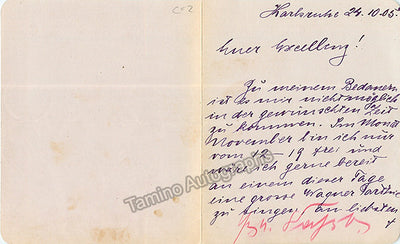 Karlsruhe 24.10.05.
Euer Excellenz!
Zu meinem Bedauern
ist es mir nicht möglich
in der gewünschten Zeit
zu kommen. Im Monat
November bin ich nur
vom 12 – 19 frei und
ich gerne bereit
an einem dieser Tage
eine grosse Wagner Partie
zu singen, am liebsten
Tamino Autographs